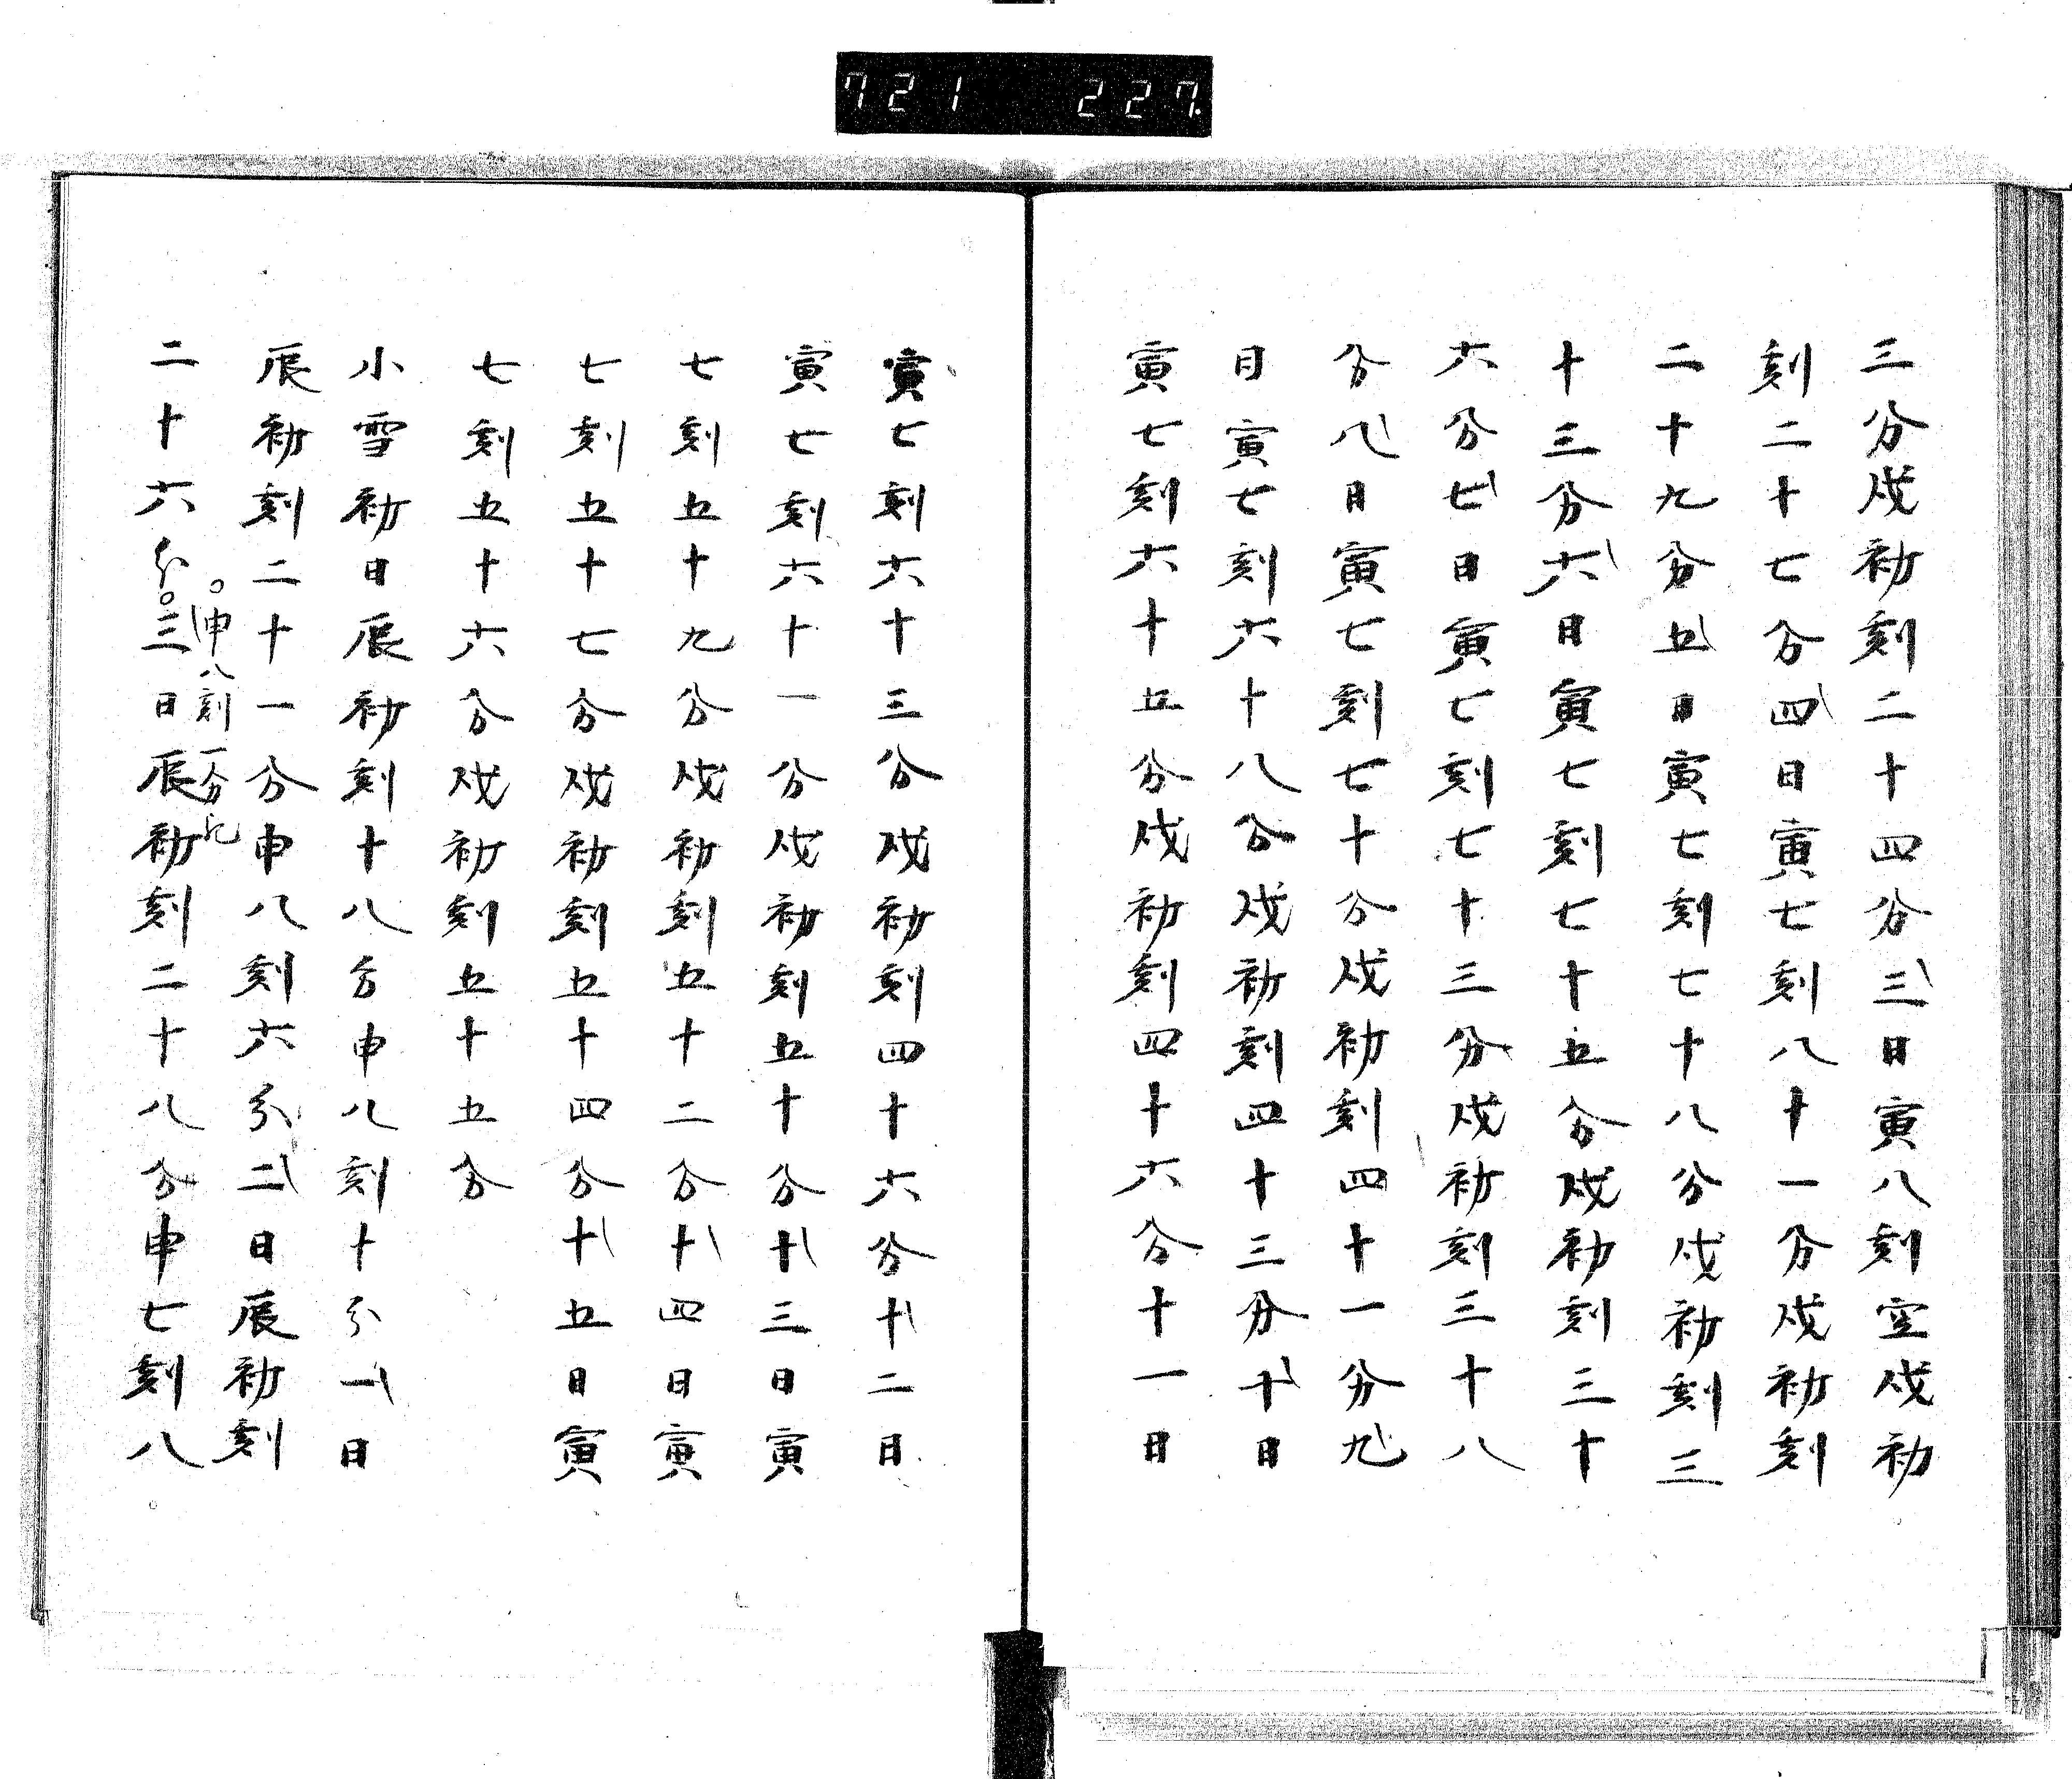 721 227.
三分戌初刻二十四分三日寅八刻空戌初
刻二十七分四日寅七刻八十一分戌初刻
二十九分五日寅七刻七十八分戌初刻三
十三分六日寅七刻七十五分戌初刻三十
六分七日寅七刻七十三分戌初刻三十八
分八日寅七刻七十分戌初刻四十一分九
日寅七刻六十八分戌初刻四十三分十日
寅七刻六十五分戌初刻四十六分十一日
寅七刻六十三分戌初刻四十六分十二日
寅七刻六十一分戌初刻五十分十三日寅
七刻五十九分戌初刻五十二分十四日寅
七刻五十七分戌初刻五十四分十五日寅
七刻五十六分戌初刻五十五分
小雪初日辰初刻十八分申八刻十分一日
辰初刻二十一分申八刻六分二日辰初刻
申八刻一分
二十六分三日辰初刻二十八分申七刻八